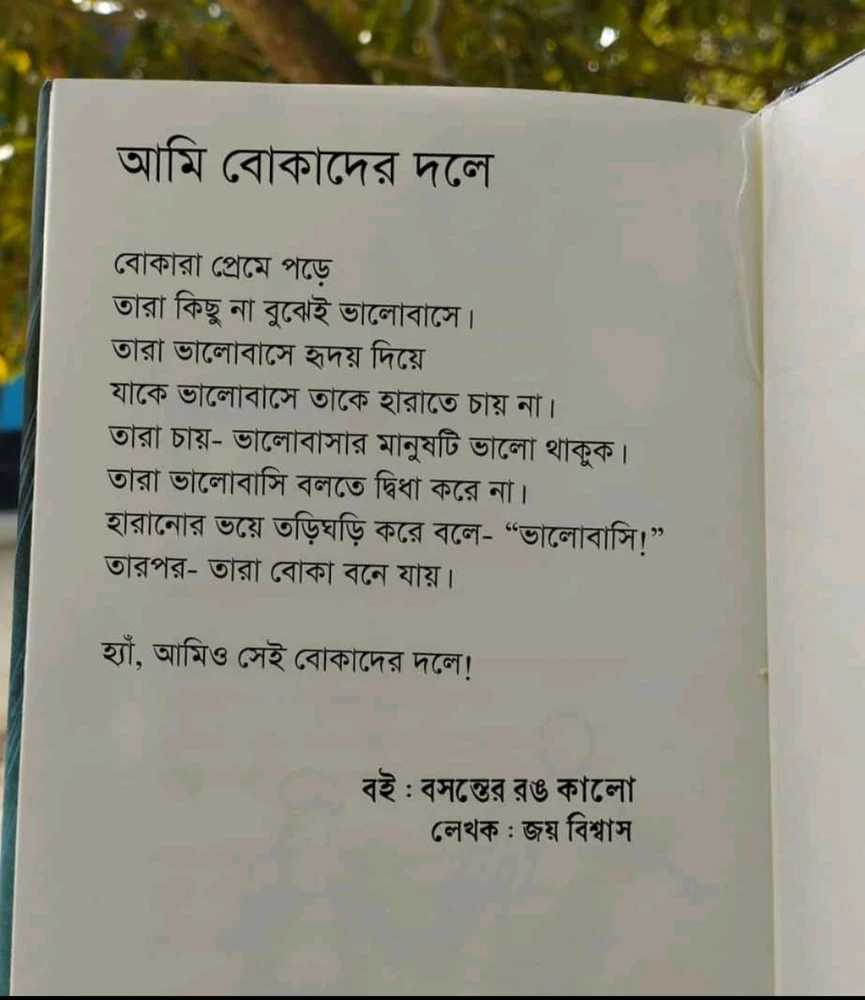 আমি বোকাদের দলে
বোকারা প্রেমে পড়ে
তারা কিছু না বুঝেই ভালোবাসে।
তারা ভালোবাসে হৃদয় দিয়ে
যাকে ভালোবাসে তাকে হারাতে চায় না।
তারা চায়- ভালোবাসার মানুষটি ভালো থাকুক।
তারা ভালোবাসি বলতে দ্বিধা করে না।
হারানোর ভয়ে তড়িঘড়ি করে বলে- “ভালোবাসি!”
তারপর- তারা বোকা বনে যায়।
হ্যাঁ, আমিও সেই বোকাদের দলে!
বই : বসন্তের রঙ কালো
লেখক : জয় বিশ্বাস